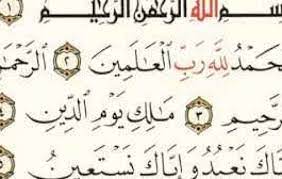 سْمِ ٱللَّهِ ٱلرَّحْمَٰنِ ٱلرَّحِيمِ ١
حَمْدُ لِلَّهِ رَبِّ ٱلْعَٰلَمِينَ ٢ ٱلرَّحْمَٰ
رَّحِيمِ ٣ مَٰلِكِ يَوْمِ ٱلدِّينِ
اكَ نَعْبُدُ وَإِيَّاكَ نَسْتَعِينُ